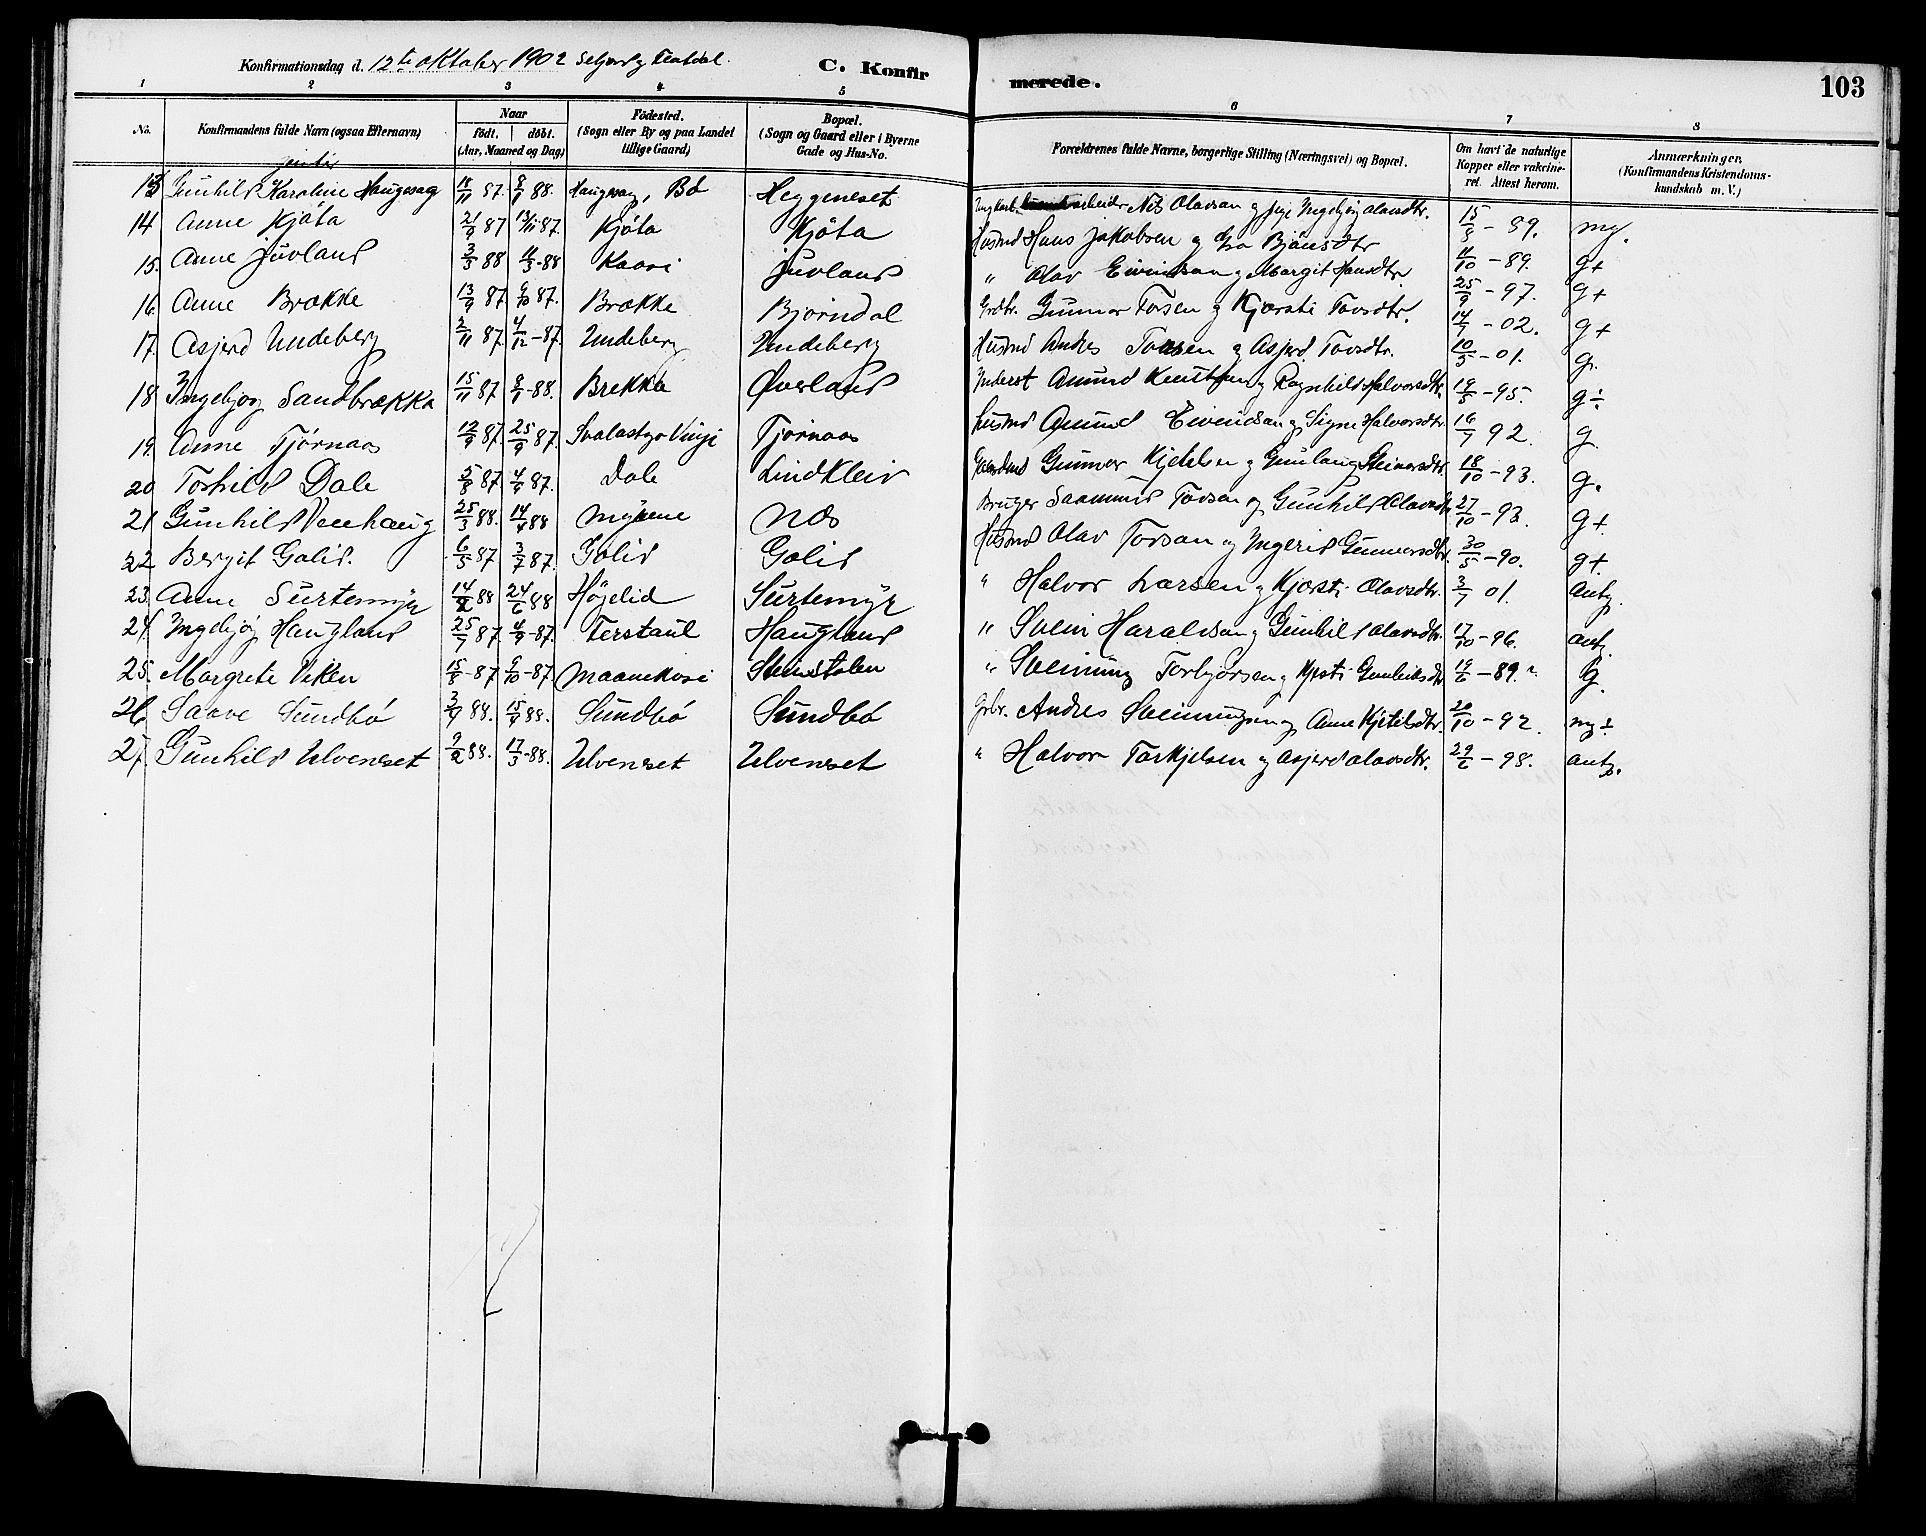 Konfirmationsdag d. 12te oktober 1902 Seljord og Flatdal. C. Konfirmerede. 103
1 2 3 4 5 6 7 8
No. Konfirmandens fulde Navn (ogsaa Efternavn) Naar født. døbt. (Aar, Maaned og Dag) Fødested. (Sogn eller By og paa Landet tillige Gaard) Bopæl. (Sogn og Gaard eller i Byerne Gade og Hus-No. Forældrenes fulde Navne, borgerlige Stilling (Næringsvei) og Bopæl. Om havt de naturlige Kopper eller vakcineret. Attest herom. Anmærkninger. (Konfirmandens Kristendomskundskab m. V.)
jenter
13 Gunhild Karoline Haugesag 18/11 87. 8/1 88. Haugesag, Bø Heggeneset arbeider Nils Olavsen og Ingebjørg Olavsdtr. 15/8 - 89. mg.
14 Anne Kjøta 21/9 87 13/11 87. Kjøta Kjøta Husmd Hans Jakobsen og Gro Bjønsdtr 4/10 - 89. g+
15. Anne Juvland 3/3 88 4/3 - 88 Kaasi Juvland " Olav Eivindsen og Margit Hansdtr. 25/9 - 97. g+
16. Anne Brække 13/9 87. 9/10 87. Brække Bjørndal Grdbr. Gunnar Torsen og Kjørsti Tovsdtr. 14/7 - 02. g+
17. Asjerd Undeberg 2/11 87. 4/12 - 87. Undeberg Undeberg Husmd Andres Torsen og Asjerd Tovsdtr. 10/5 - 01. g.
18 Ingebjorg Sandbrækka 15/11 87 8/1 - 88. Brekka Øverland Inderst Amund Knutsen og Ragnhild Halvorsdtr. 19/5 - 95. g÷
19. Anne Tjørnaas 12/9 87. 25/9 87. Svalastyo Vinje Tjørnaas husmd Amund Eivindsen og Signe Halvorsdtr. 16/7 92. g.
20 Torhild Dale 5/8 87 4/9 87. Dale Lindkleiv Gaardmd Gunnar Kjetelsen og Gunlaug Steinarsdtr. 18/10 - 93. g.
21 Gunhild Veehaug 25/3 88. 14/4 88 Myrene Næs Bruger Saamund Tovsen og Gunhild Olavsdtr 27/10 - 93. g+.
22 Bergit Golid. 6/5 87 3/7 87. Golid Golid Husmd Olav Torsen og Ingerid Gunnarsdtr. 30/5 - 90. g+.
23. Anne Surtemyr 14/2 88 24/6 88 Højelid Surtemyr " Halvor Larsen og Kjørsti Olavsdtr. 3/7 01. antg.
24. Ingebjø Haugland 25/7 87. 4/9 - 87. Terstaul Haugland " Svein Haraldsen og Gunhild Olavsdtr. 17/10 - 96. antg.
25. Margrete Viken 15/8 - 87 9/10 - 87 Maanekasi Steinstolen " Sveinung Torbjørsen og Kjersti Gunleiksdtr 19/6 - 89. g.
26. Saave Sundbø 3/4 88. 15/4 88. Sundbø Sundbø Grbr. Andres Sveinungsen og Anne Kjetilsdtr. 20/10 - 92. mg÷
27. Gunhild Ulveneset 9/2 88. 17/3 - 88. Ulveneset Ulveneset " Halvor Torkjelsen og Asjerd Olavsdtr. 29/6 - 98. antg.